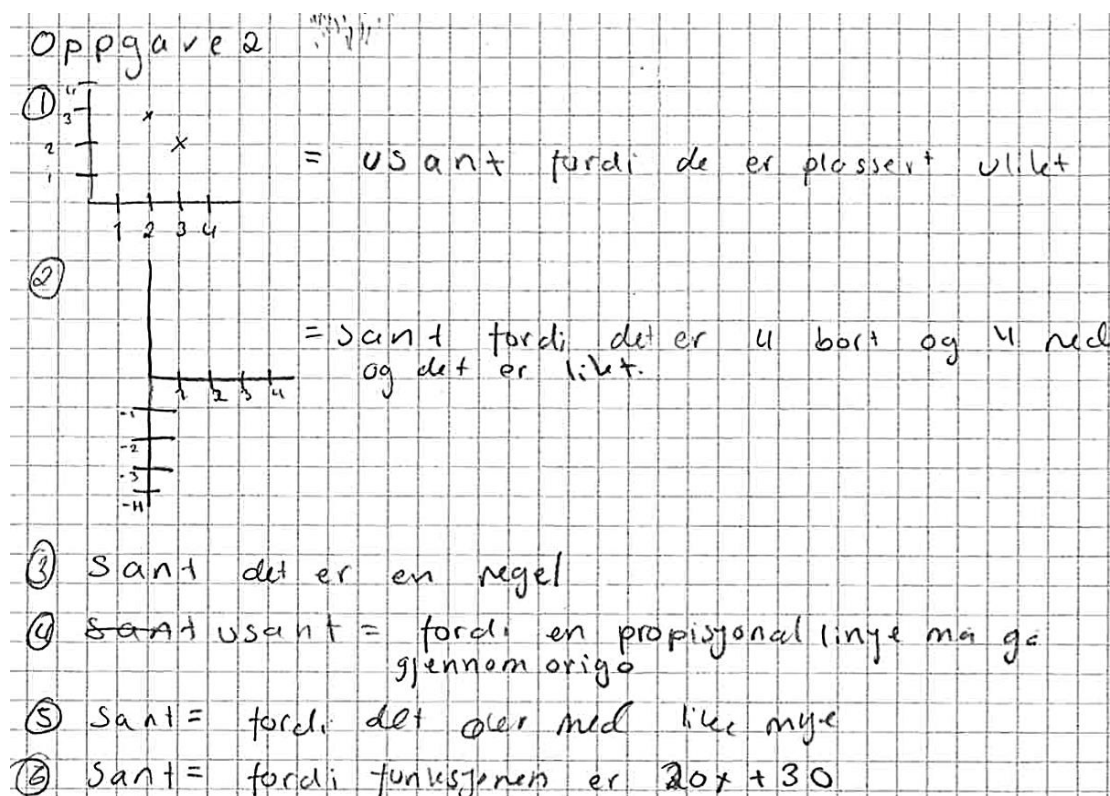 Oppgave 2
①
4
3
2
1
1 2 3 4
= usant fordi de er plassert ulikt
②
= sant fordi det er 4 bort og 4 ned
og det er likt.
1 2 3 4
-1
-2
-3
-4
③ Sant det er en regel
④ sant usant = fordi en propisjonal linje må gå
gjennom origo
⑤ Sant = fordi det øker med like mye
⑥ Sant = fordi funksjonen er 20x + 30